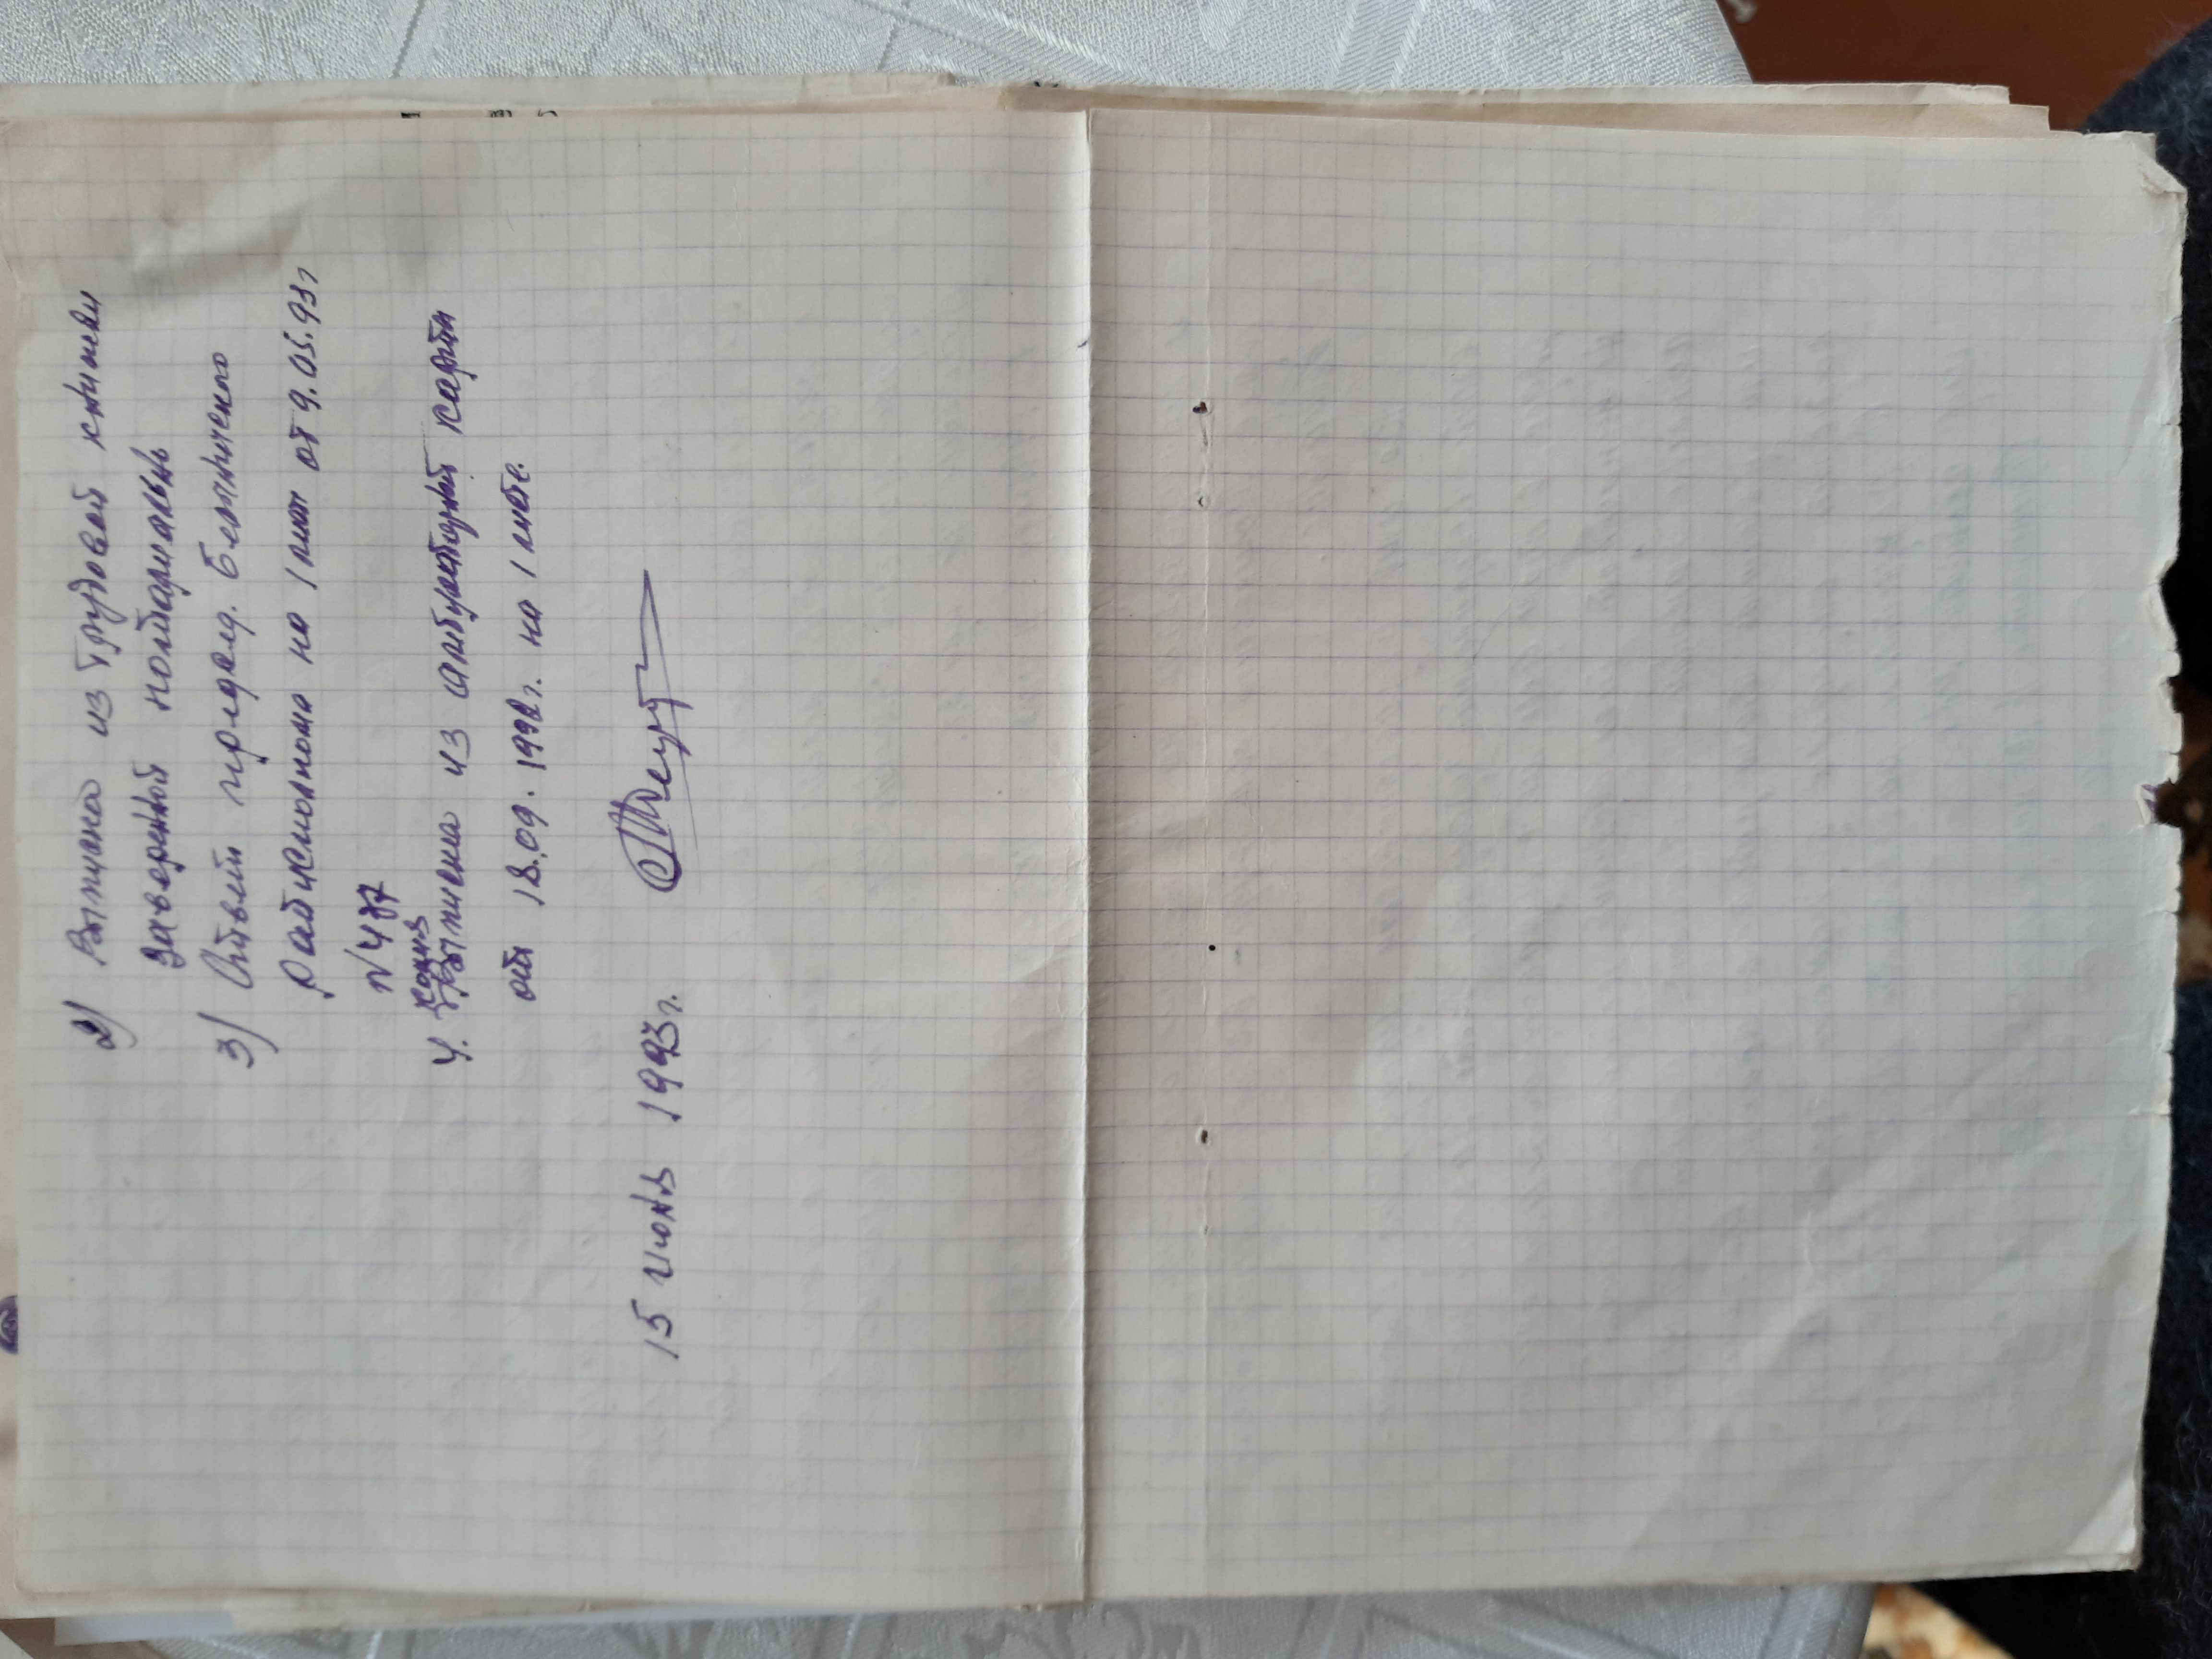 2) Выписка из трудовой книжки
заверенной нотариально
3) Ответ пред. Белинского
Райисполкома на 1 лист от 9.05.93г
N 477
копия
4. Выписка из амбулаторной карты
от 18.09.1992г. на 1 листе.
15 июня 1993г.